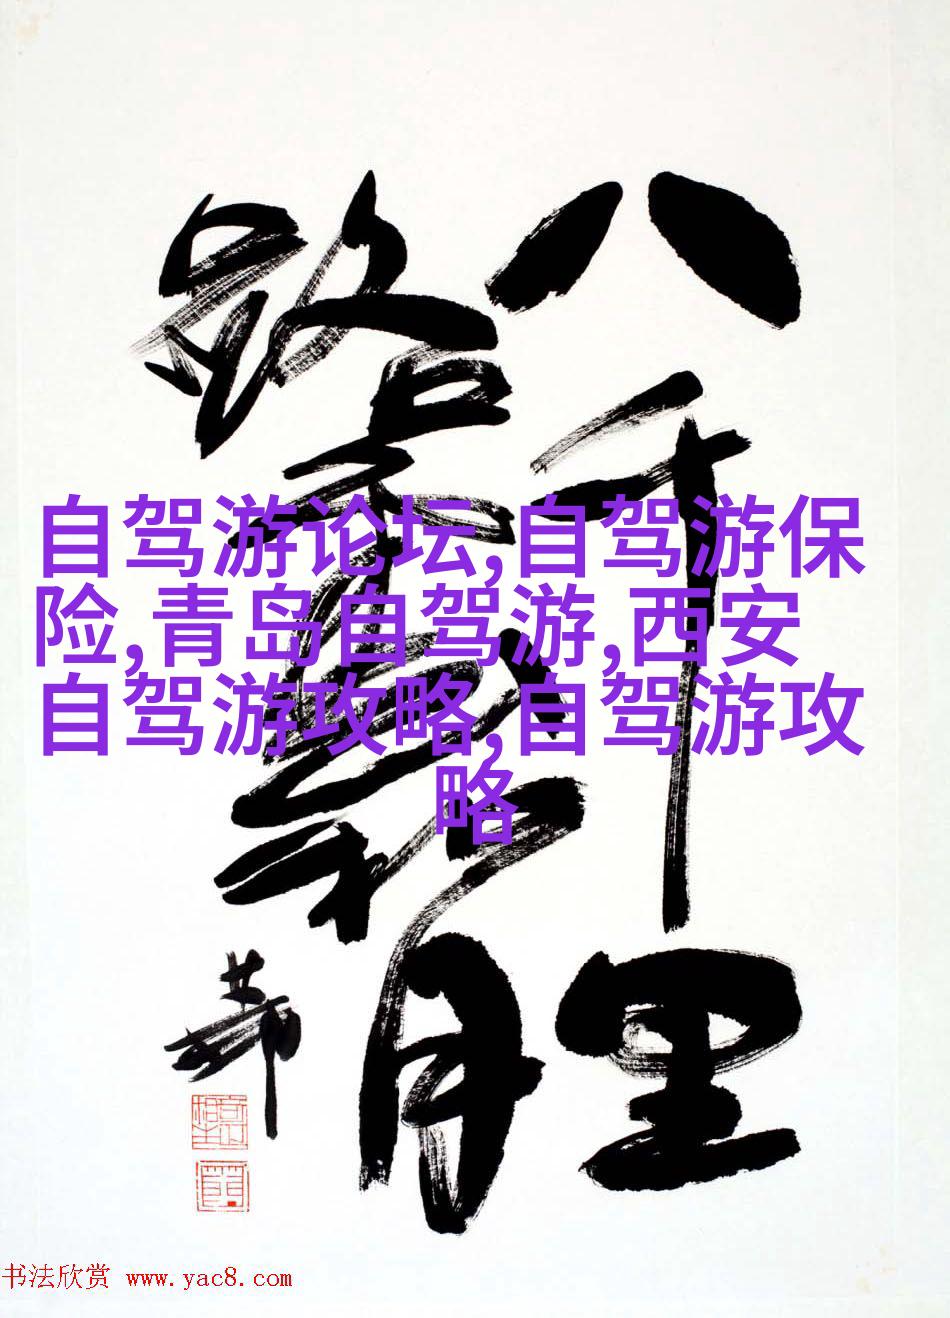 八千里
路雲和月
自驾游论坛,自驾游保
险,青岛自驾游,西安
自驾游攻略,自驾游攻
略
书法欣赏 www.yac8.com